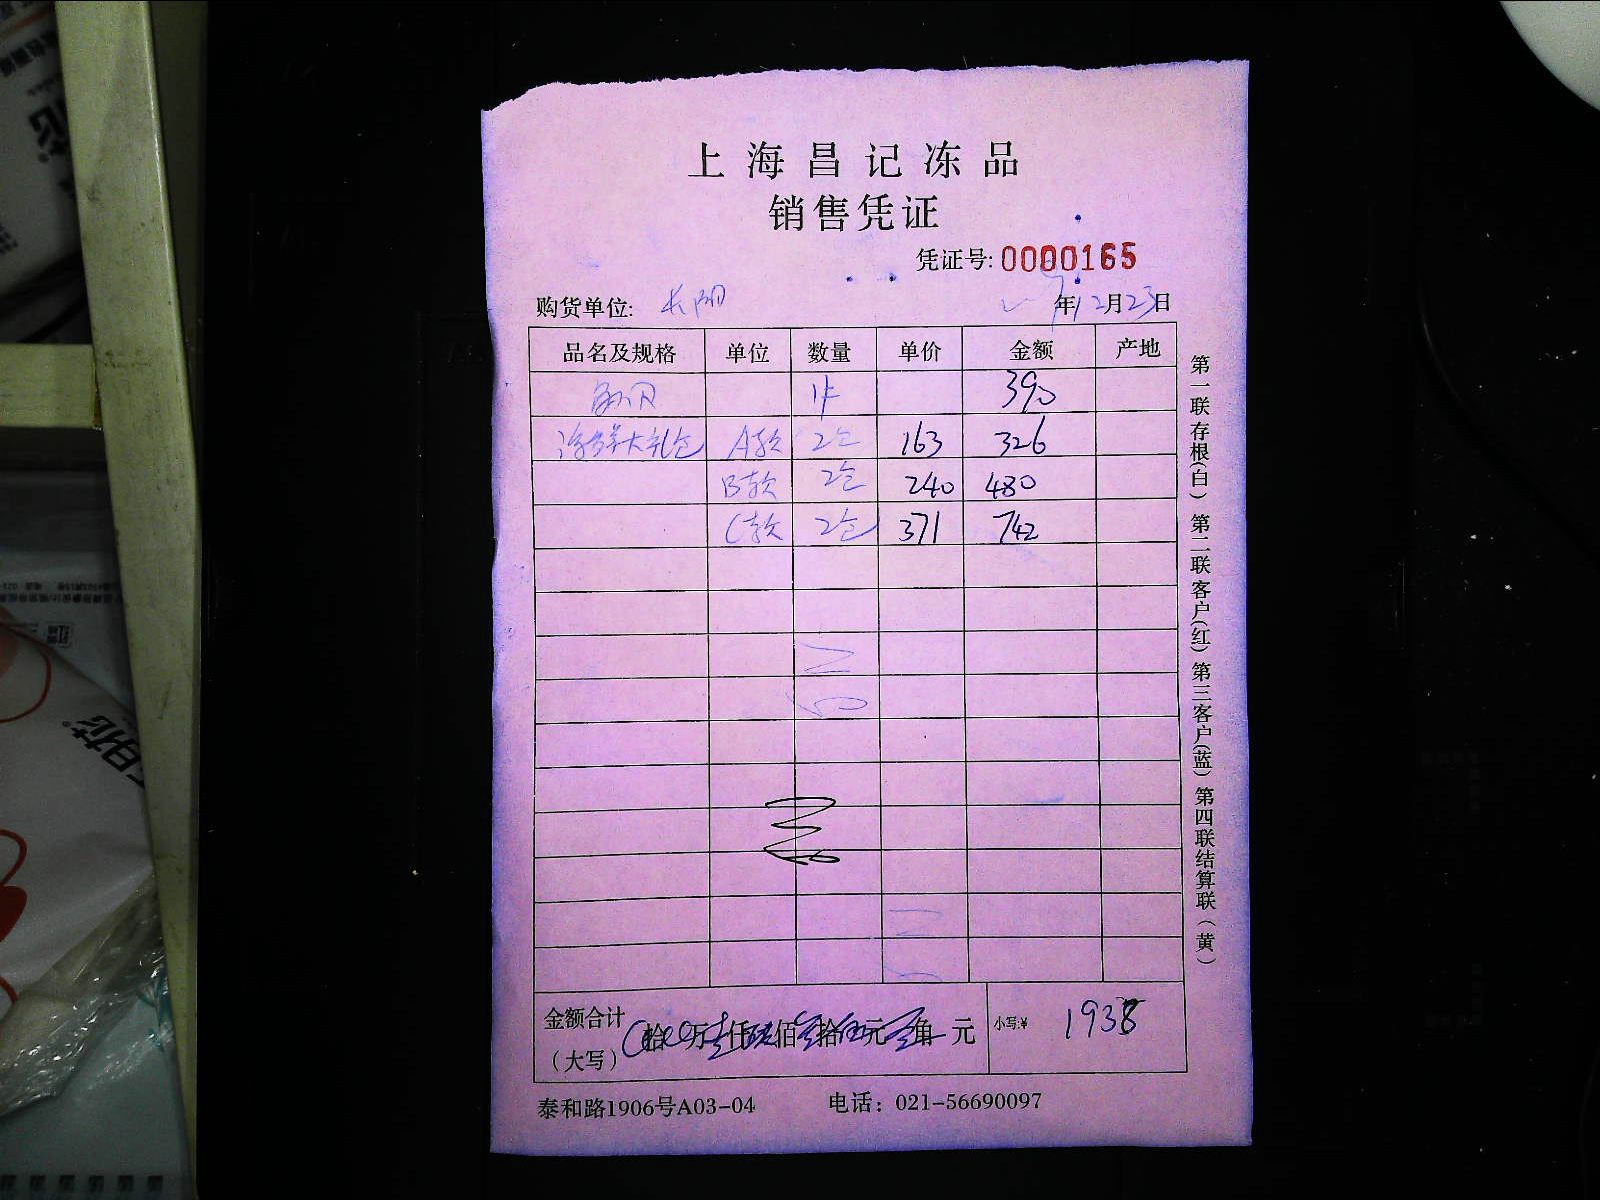 上海昌记冻品
销售凭证
凭证号:0000165
购货单位: 长阳 年12月23日
品名及规格 单位 数量 单价 金额 产地
1件 390
海鲜大礼包 A款 2包 163 326
B款 2包 240 480
C款 2包 371 742
金额合计 拾 万 仟 佰 拾 元 角 元 小写:¥ 1938
(大写)
泰和路1906号A03-04 电话：021-56690097
第一联存根(白) 第二联客户(红) 第三客户(蓝) 第四联结算联(黄)